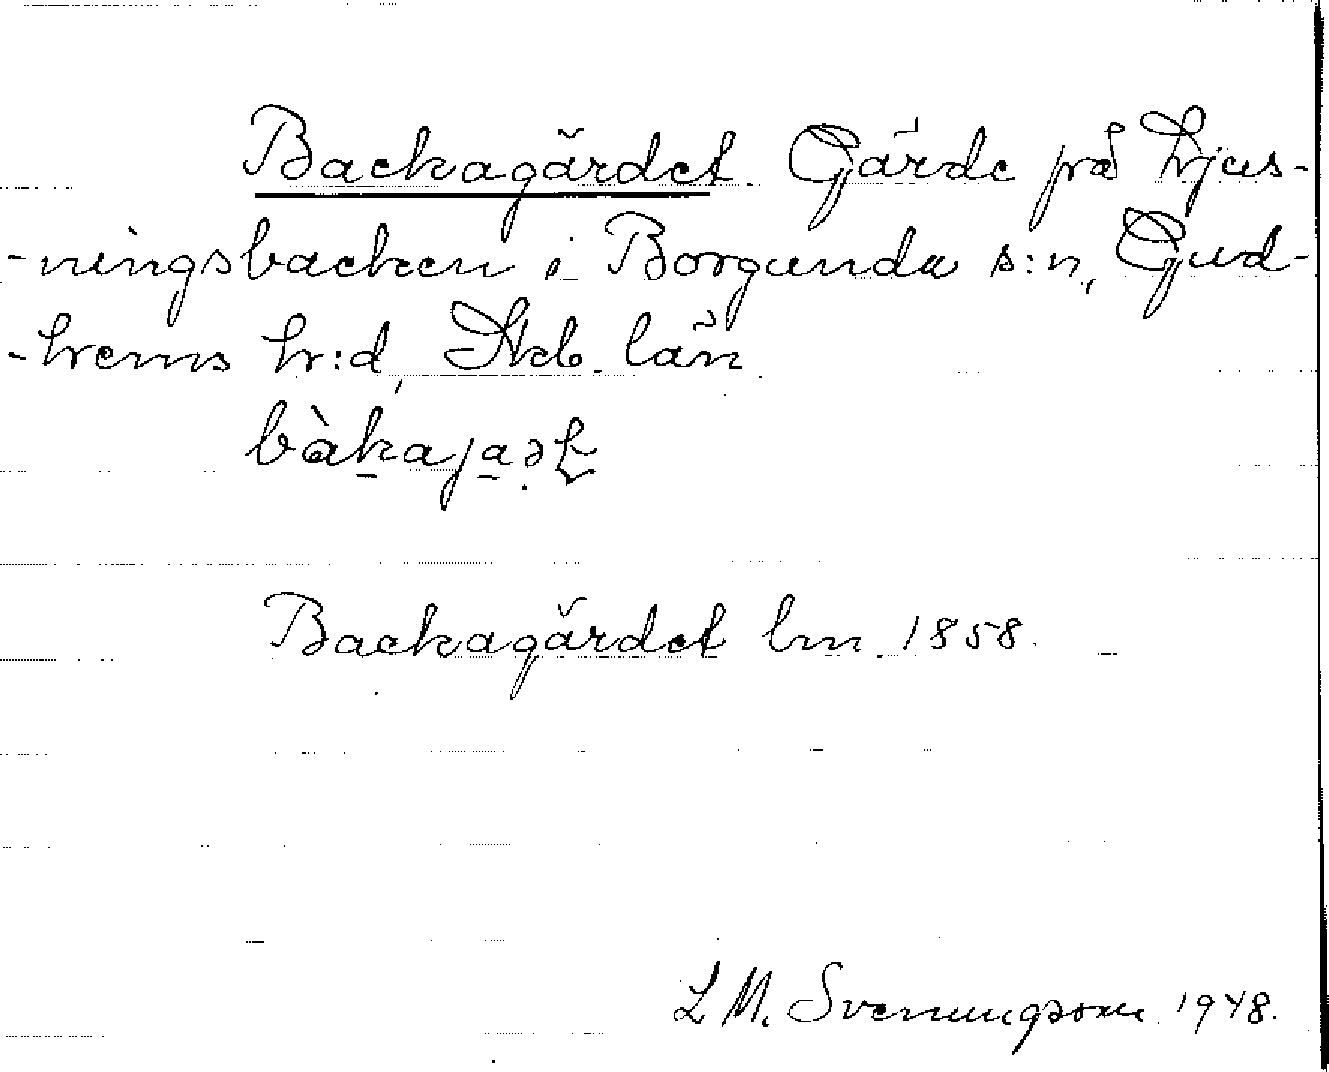 Backagärdet. Gärde på Ljus-
-ningsbacken i Borgunda s:n, Gud-
-hems h:d, Skb. län
bàkaja
Backagärdet lm. 1858.
L M. Svenungsson 1948.